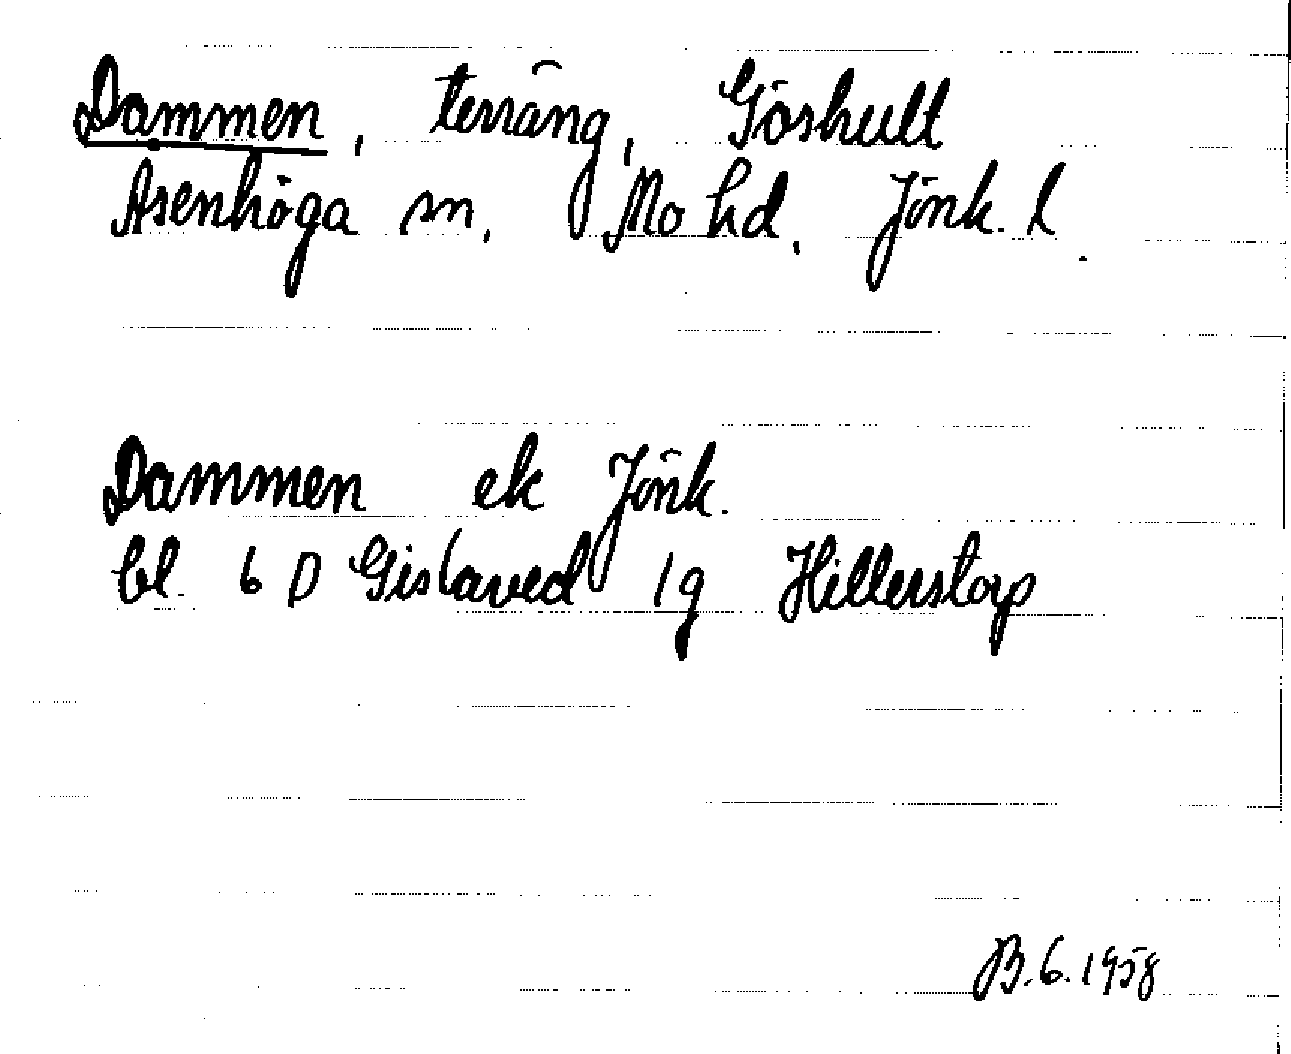 Dammen, terräng, Göshult
Åsenhöga sn, Mo hd, Jönk. l.
Dammen ek Jönk.
bl. 6 D Gislaved 1g Hillerstorp
B.6.1958